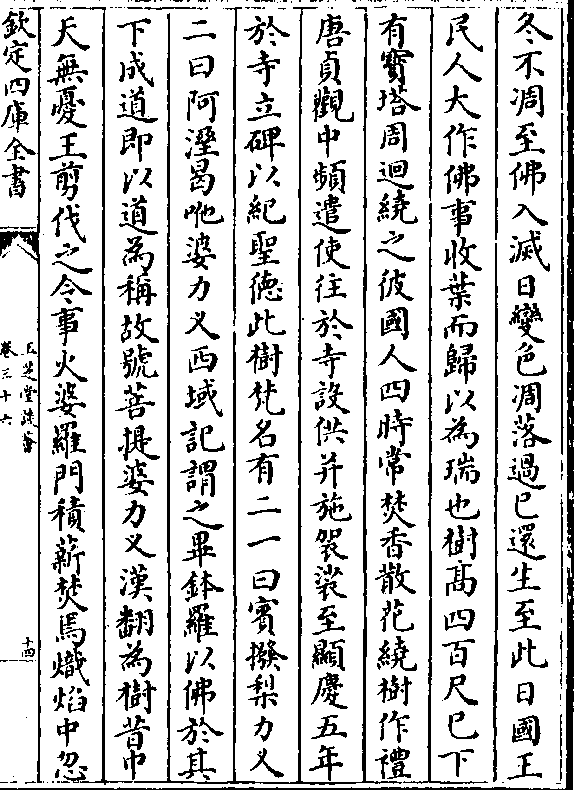 冬不凋至佛入滅日變色凋落過已還生至此日國王
民人大作佛事收葉而歸以為瑞也樹髙四百尺已下
有寳塔周迴繞之彼國人四時常焚香散花繞樹作禮
唐貞觀中頻遣使往於寺設供并施袈裟至顯慶五年
於寺立碑以紀聖徳此樹梵名有二一曰賓撥梨力义
二曰阿溼曷咃婆力义西域記謂之畢鉢羅以佛於其
下成道即以道為稱故號菩提婆力义漢翻為樹昔中
天無憂王剪伐之令事火婆羅門積薪焚焉熾焰中忽
欽定四庫全書
玉芝堂談薈
卷三十六
十四